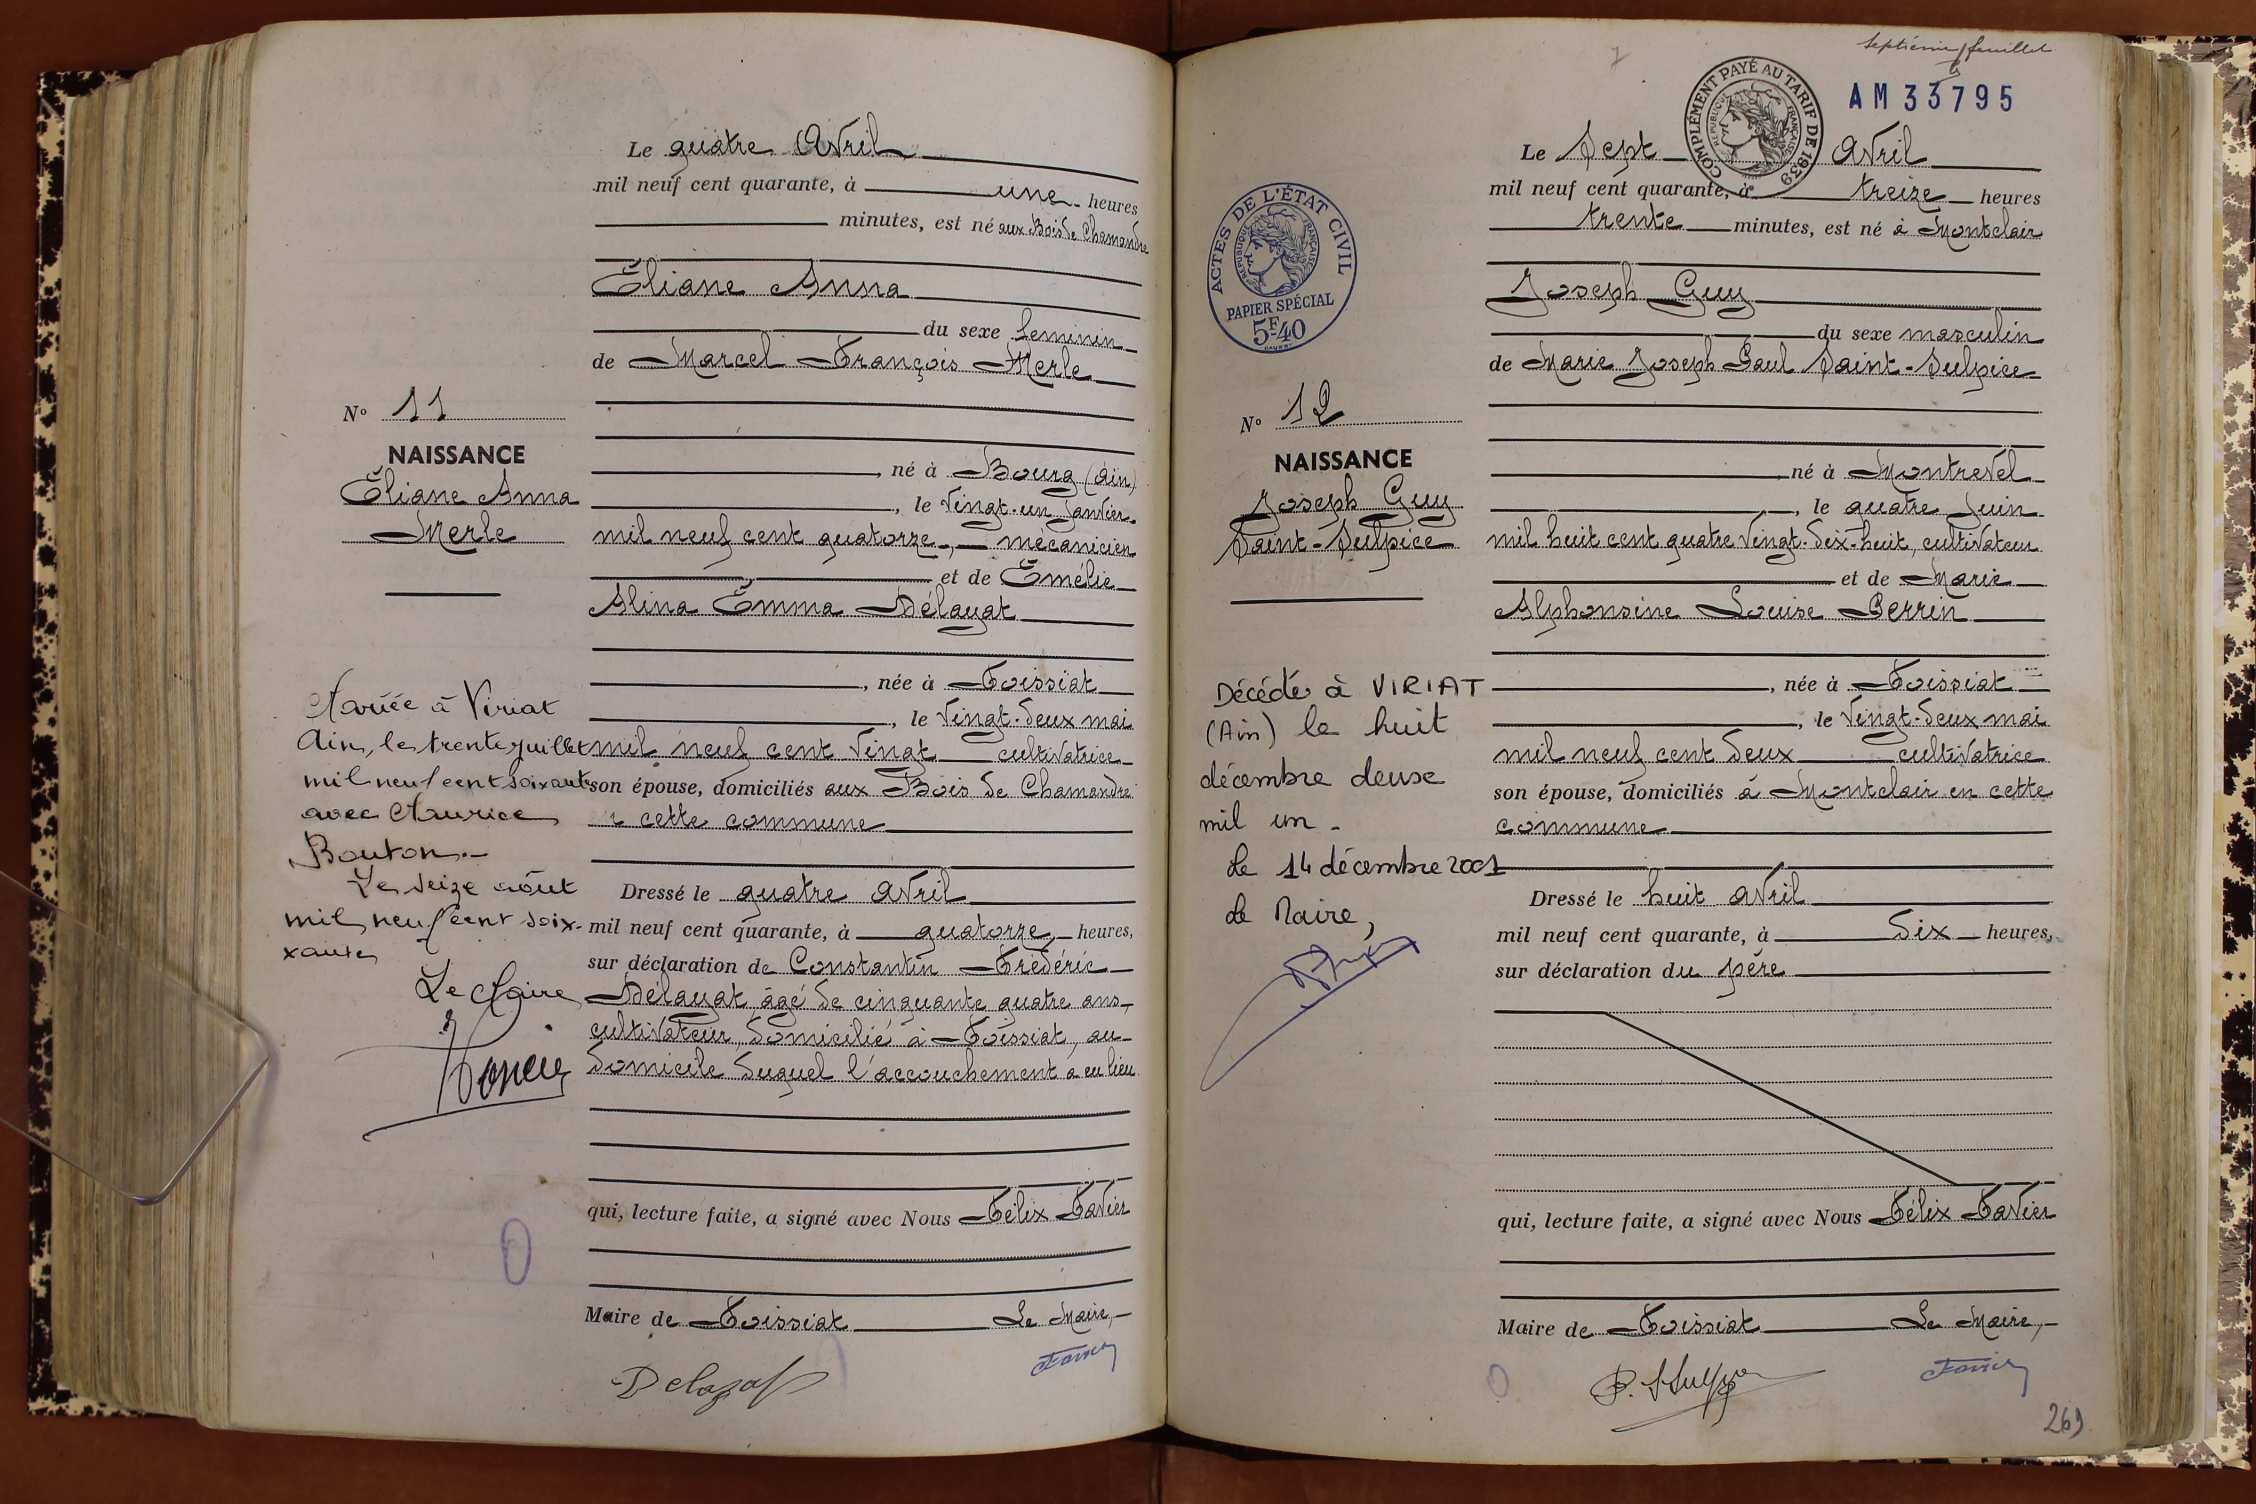 Le quatre Avril
mil neuf cent quarante, à une heures
minutes, est né aux Bois de Chamandre
Éliane Anna
du sexe féminin
de Marcel François Merle
N° 11
NAISSANCE
Éliane Anna
Merle
né à Bourg (Ain)
, le vingt-un janvier
mil neuf cent quatorze, mécanicien
et de Émélie
Alina Emma Délayat
, née à Foissiat
, le vingt-deux mai
mil neuf cent vingt cultivatrice
son épouse, domiciliés aux Bois de Chamandre
cette commune
Dressé le quatre avril
mil neuf cent quarante, à quatorze heures,
sur déclaration de Constantin Frédéric
Délayat, âgé de cinquante quatre ans,
cultivateur, domicilié à Foissiat, au
domicile duquel l'accouchement a eu lieu
qui, lecture faite, a signé avec Nous Félix Favier
Maire de Foissiat Le Maire,
Mariée à Viriat
Ain, le trente juillet
mil neuf cent soixante
avec Maurice
Bouton.-
Le seize août
mil neuf cent soix-
xante
Le Maire
Delayat
septième feuillet
7
COMPLÉMENT PAYÉ AU TARIF DE 1939
RÉPUBLIQUE FRANÇAISE
AM 33795
Le sept Avril
mil neuf cent quarante, à treize heures
trente minutes, est né à Montclair
ACTES DE L'ÉTAT CIVIL
RÉPUBLIQUE FRANÇAISE
PAPIER SPÉCIAL
5F40
Joseph Guy
du sexe masculin
de Marie Joseph Paul Saint-Sulpice
N° 12
NAISSANCE
Joseph Guy
Saint-Sulpice
né à Montrevel
, le quatre Juin
mil huit cent quatre vingt-dix-huit, cultivateur
et de Marie
Alphonsine Louise Perrin
, née à Foissiat
, le vingt-deux mai
mil neuf cent deux cultivatrice
son épouse, domiciliés à Montclair en cette
commune
Dressé le huit avril
mil neuf cent quarante, à dix heures,
sur déclaration du père
qui, lecture faite, a signé avec Nous Félix Favier
Maire de Foissiat Le Maire,
Décédé à VIRIAT
(Ain) le huit
décembre deux
mil un -
Le 14 décembre 2001
Le Maire,
269